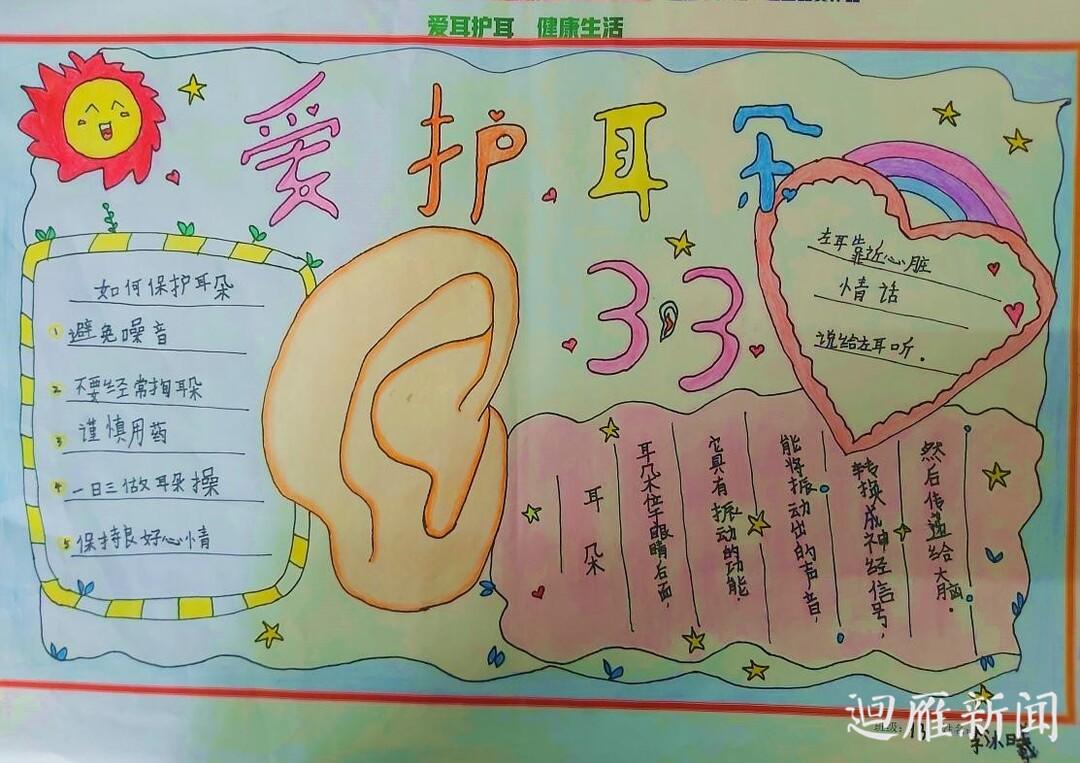 爱耳护耳 健康生活
爱护耳朵
3.3
如何保护耳朵
1 避免噪音
2 不要经常掏耳朵
3 谨慎用药
4 一日三做耳朵操
5 保持良好心情
左耳靠近心脏
情话
说给左耳听.
耳朵
耳朵位于眼睛后面,
它具有振动的功能.
能将振动出的声音,
转换成神经信号,
然后传递给大脑.
迴雁新闻
班级: 13